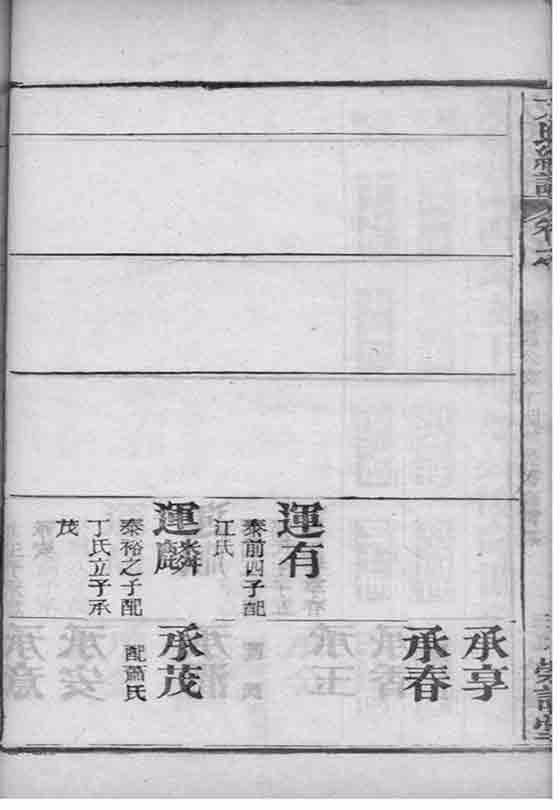 承享
承春
運有
泰前四子配
江氏
運麟
泰裕之子配
丁氏立子承
茂
承茂
配蕭氏